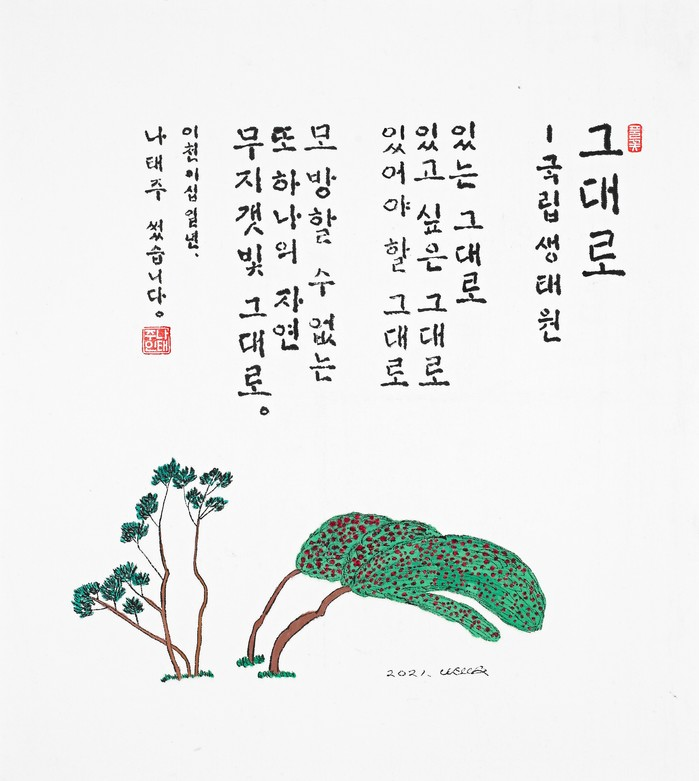 그대로
풀꽃
-국립생태원
있는 그대로
있고 싶은 그대로
있어야 할 그대로
모방할 수 없는
또 하나의 자연
무지갯빛 그대로。
이천이십일년.
나태주 썼습니다。
나태주인
2021.